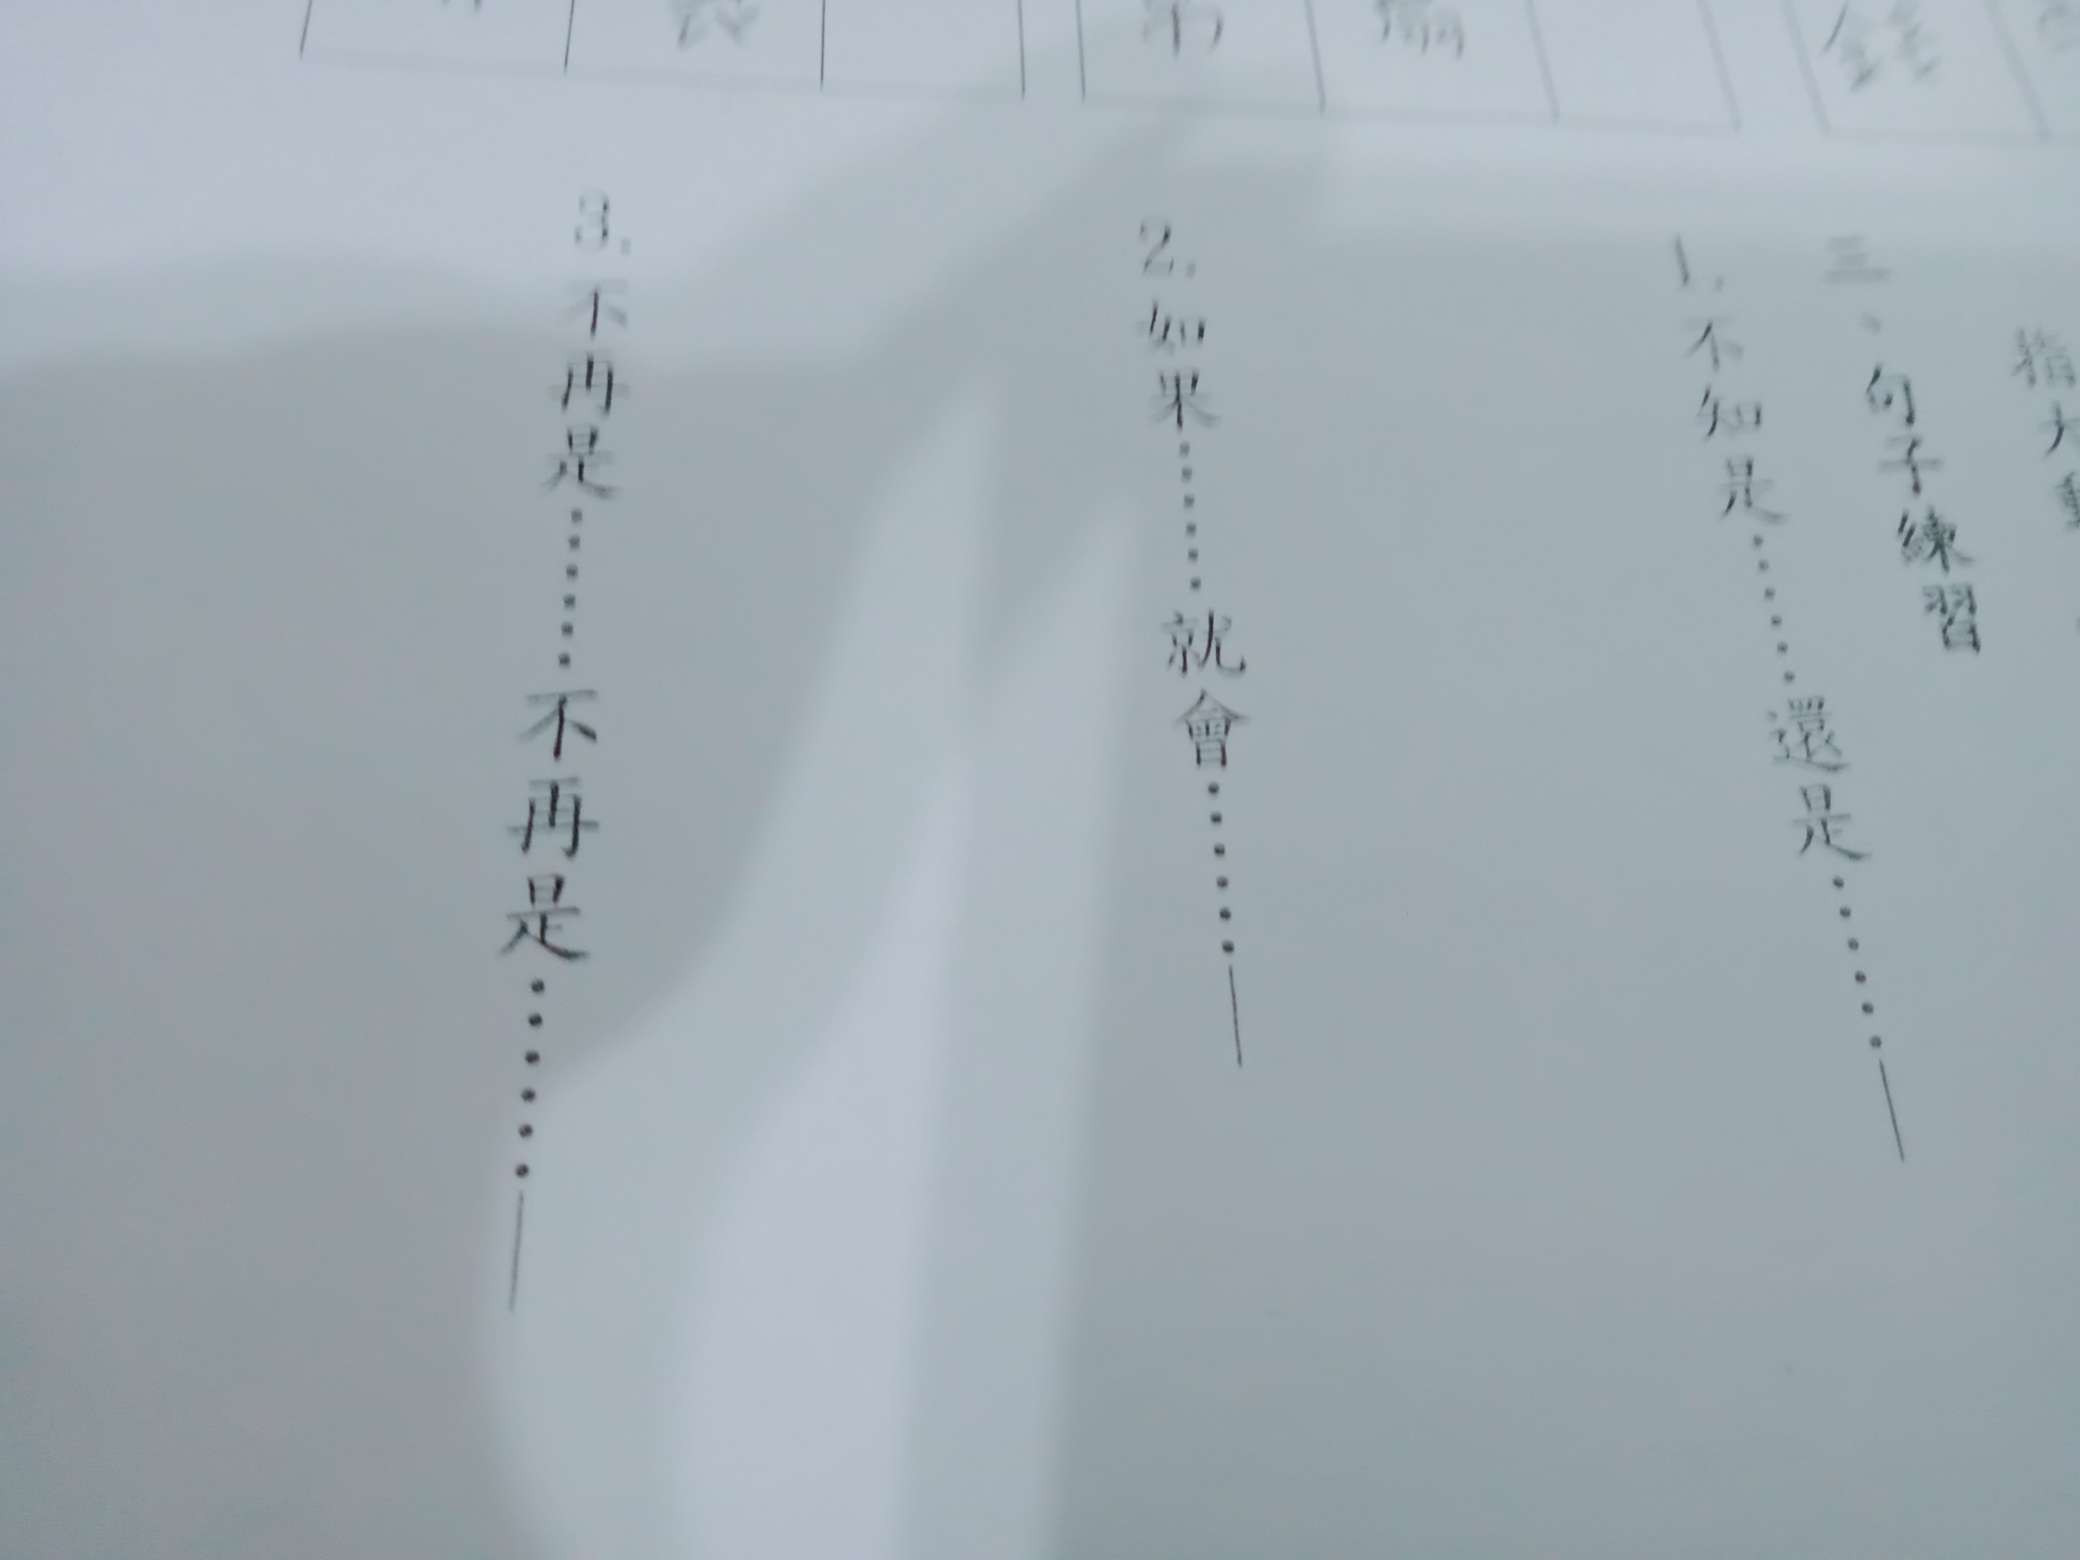 三、句子練習
1.不知是……還是……
2.如果……就會……
3.不再是……不再是……